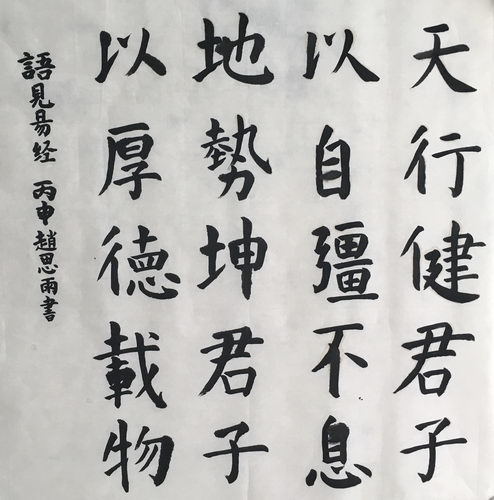 天行健君子
以自彊不息
地勢坤君子
以厚德載物
語見易经 丙申趙思雨書